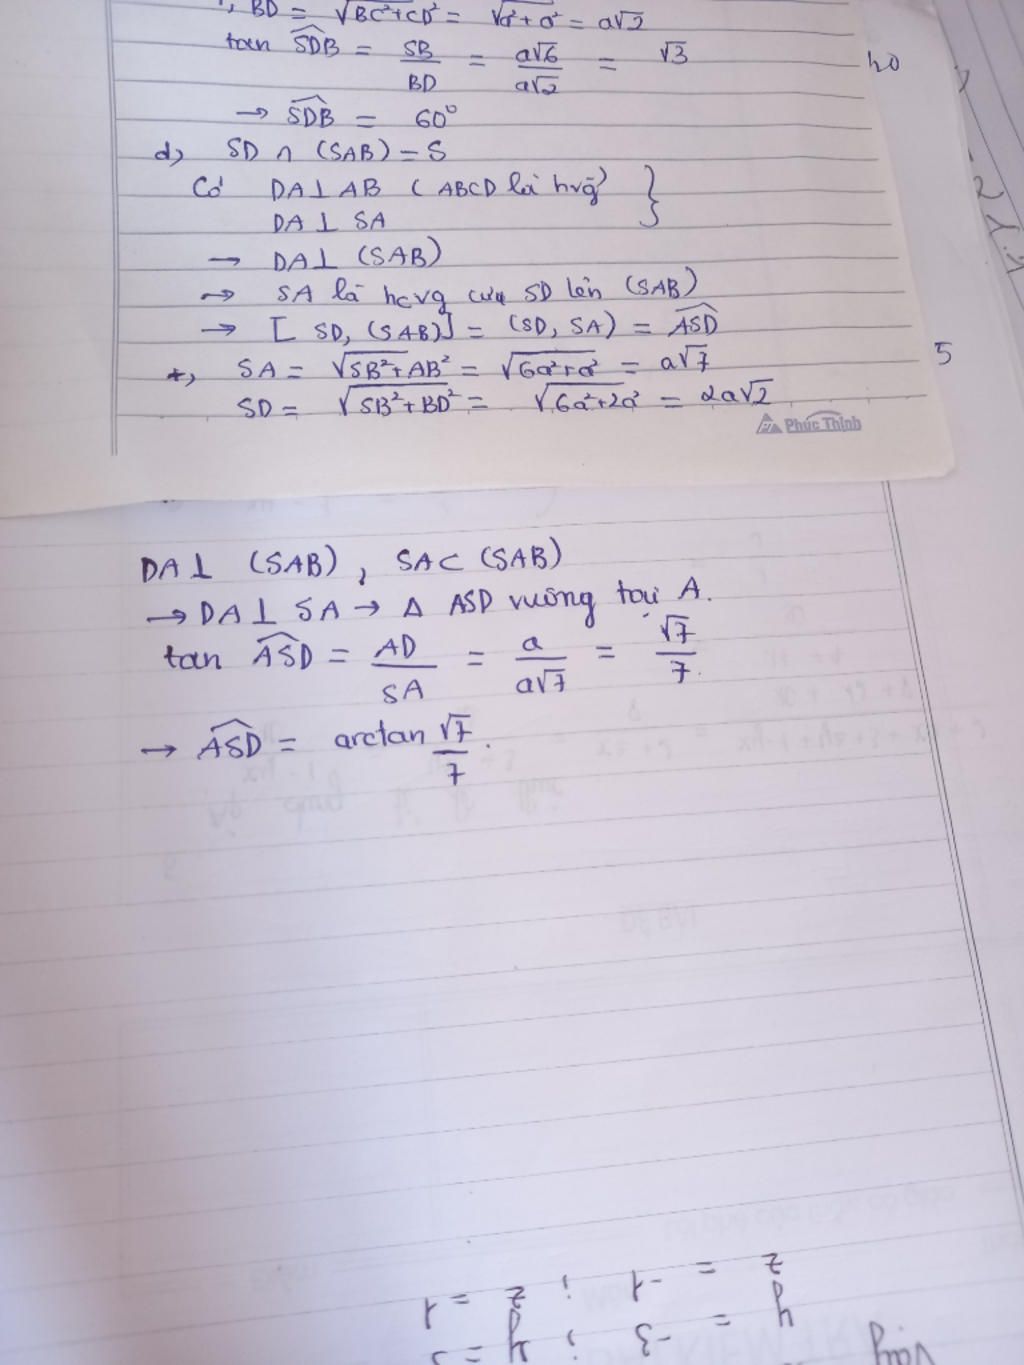 BD = √BC²+CD² = √a²+a² = a√2
tan SDB = SB/BD = a√6/a√2 = √3
→ SDB = 60°
d, SD ∩ (SAB) = S
Có DA⊥AB (ABCD là hvg) }
DA ⊥ SA
→ DA⊥ (SAB)
→ SA là hcvg của SD lên (SAB)
→ [SD, (SAB)] = (SD, SA) = ASD
*, SA = √SB²+AB² = √6a²+a² = a√7
SD = √SB²+BD² = √6a²+2a² = 2a√2
5
Phúc Thịnh
DA⊥ (SAB), SA⊂ (SAB)
→ DA⊥ SA → Δ ASD vuông tại A.
tan ASD = AD/SA = a/a√7 = √7/7.
→ ASD = arctan √7/7.
z = -1 ; z = 1
y = -3 ; y =
Vậy